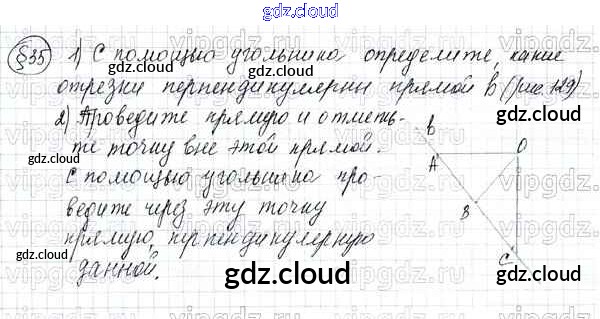 gdz.cloud
§35 1) С помощью угольника определите, какие
отрезки перпендикулярны прямой b (рис. 129)
2) Проведите прямую и отметь-
те точку вне этой прямой.
С помощью угольника про-
ведите через эту точку
прямую, перпендикулярную
данной.
b
A
O
B
C
gdz.cloud
gdz.cloud
gdz.cloud
gdz.cloud
gdz.cloud
gdz.cloud
gdz.cloud
gdz.cloud
gdz.cloud
vipgdz.ru